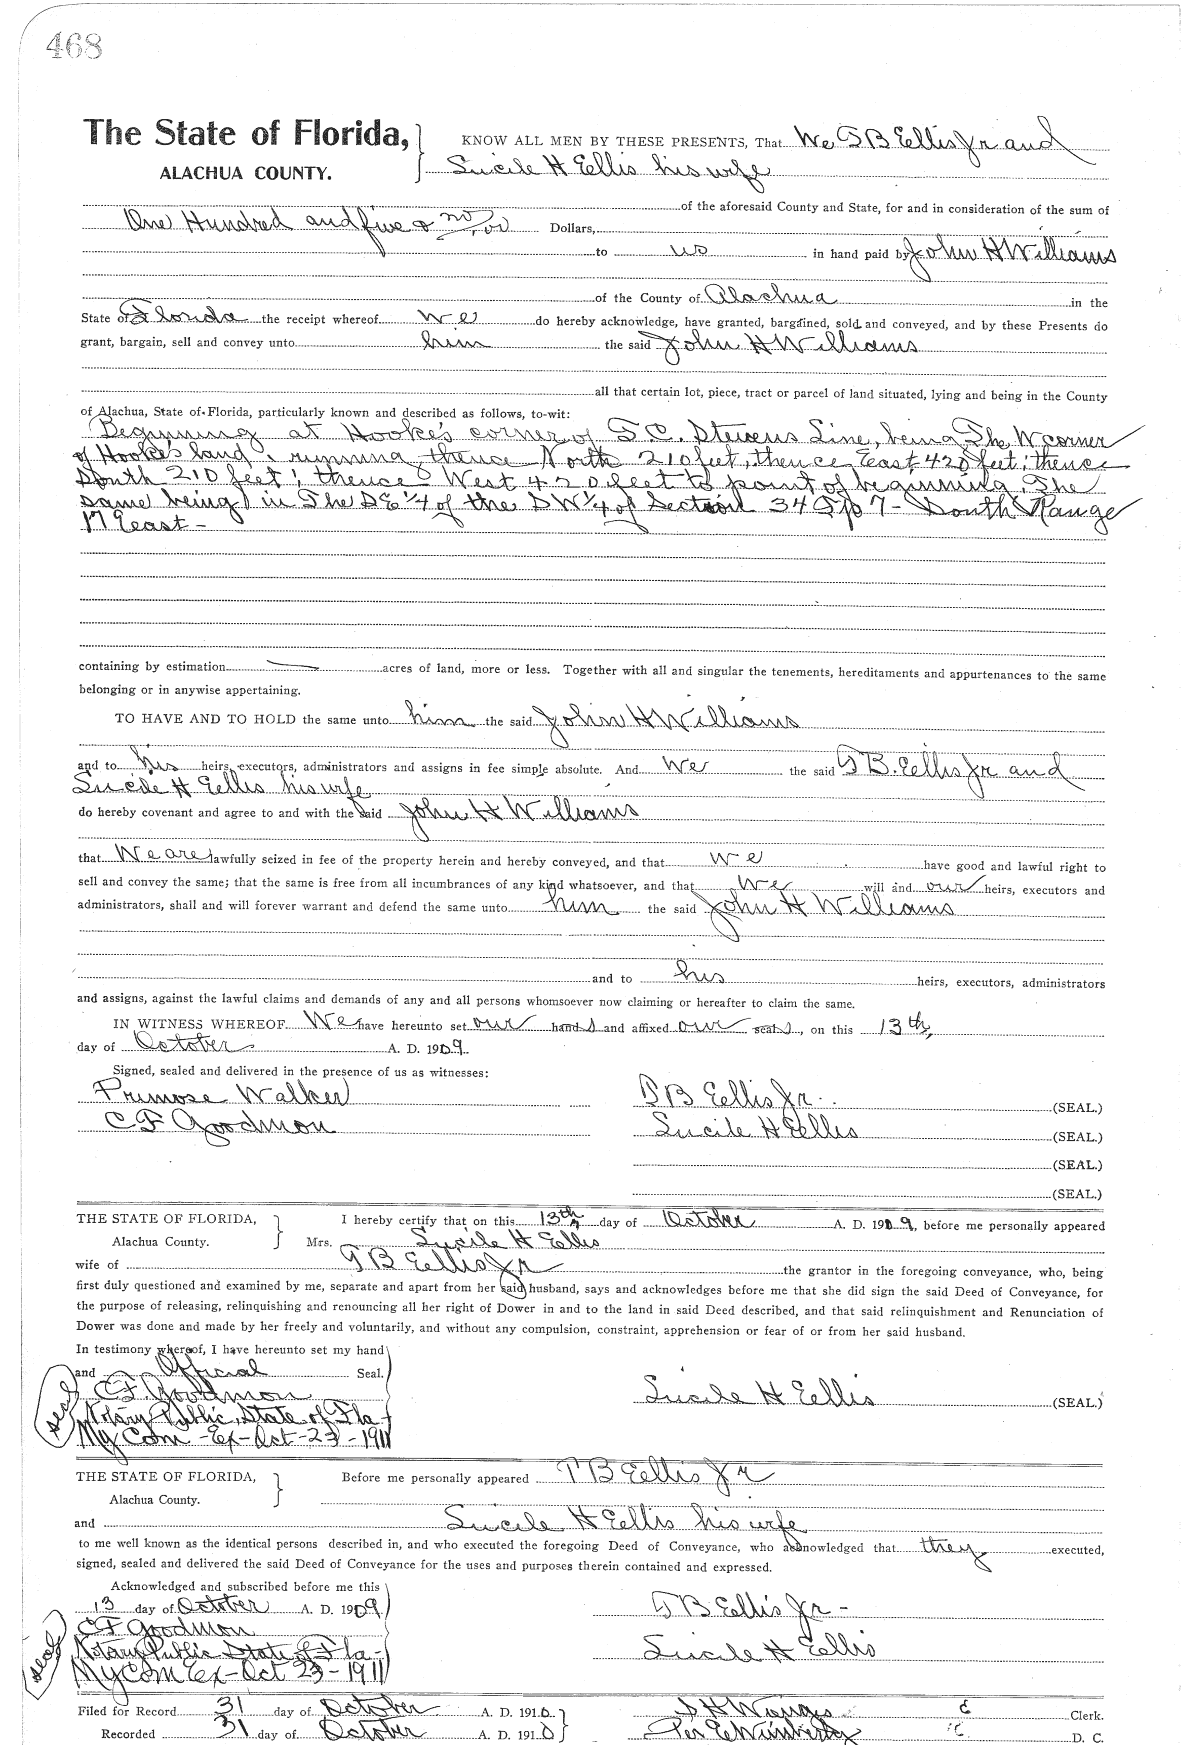 468
The State of Florida,
ALACHUA COUNTY.
KNOW ALL MEN BY THESE PRESENTS, That We T B Ellis Jr and
Lucile H Ellis his wife
of the aforesaid County and State, for and in consideration of the sum of
One Hundred and five & no/00 Dollars,
to us in hand paid by John H Williams
of the County of Alachua in the
State of Florida the receipt whereof we do hereby acknowledge, have granted, bargained, sold and conveyed, and by these Presents do
grant, bargain, sell and convey unto him the said John H Williams
all that certain lot, piece, tract or parcel of land situated, lying and being in the County
of Alachua, State of Florida, particularly known and described as follows, to-wit:
Beginning at Hooke's corner of T. C. Stevens Line, being The W corner
of Hooke's land, running thence North 210 feet, thence East 420 feet; thence
South 210 feet; thence West 420 feet to point of beginning. The
same being in The SE 1/4 of the SW 1/4 of Section 34 Tp 7 - South Range
17 East -
containing by estimation acres of land, more or less. Together with all and singular the tenements, hereditaments and appurtenances to the same
belonging or in anywise appertaining.
TO HAVE AND TO HOLD the same unto him the said John H Williams
and to his heirs, executors, administrators and assigns in fee simple absolute. And We the said T B. Ellis Jr and
Lucile H Ellis his wife
do hereby covenant and agree to and with the said John H Williams
that We are lawfully seized in fee of the property herein and hereby conveyed, and that we have good and lawful right to
sell and convey the same; that the same is free from all incumbrances of any kind whatsoever, and that we will and our heirs, executors and
administrators, shall and will forever warrant and defend the same unto him the said John H Williams
and to his heirs, executors, administrators
and assigns, against the lawful claims and demands of any and all persons whomsoever now claiming or hereafter to claim the same.
IN WITNESS WHEREOF We have hereunto set our hands and affixed our seals, on this 13th,
day of October A. D. 1909.
Signed, sealed and delivered in the presence of us as witnesses:
Primose Walker T B Ellis Jr. (SEAL.)
C F Goodmon Lucile H Ellis (SEAL.)
(SEAL.)
(SEAL.)
THE STATE OF FLORIDA, I hereby certify that on this 13th, day of October A. D. 1909, before me personally appeared
Alachua County. Mrs. Lucile H Ellis
wife of T B Ellis Jr the grantor in the foregoing conveyance, who, being
first duly questioned and examined by me, separate and apart from her said husband, says and acknowledges before me that she did sign the said Deed of Conveyance, for
the purpose of releasing, relinquishing and renouncing all her right of Dower in and to the land in said Deed described, and that said relinquishment and Renunciation of
Dower was done and made by her freely and voluntarily, and without any compulsion, constraint, apprehension or fear of or from her said husband.
In testimony whereof, I have hereunto set my hand
and Official Seal.
C F. Goodmon Lucile H Ellis (SEAL)
seal Notary Public, State of Fla -
My Com - Ex - Oct - 23 - 1911
THE STATE OF FLORIDA, Before me personally appeared T B Ellis Jr
Alachua County.
and Lucile H Ellis his wife
to me well known as the identical persons described in, and who executed the foregoing Deed of Conveyance, who acknowledged that they executed,
signed, sealed and delivered the said Deed of Conveyance for the uses and purposes therein contained and expressed.
Acknowledged and subscribed before me this
13 day of October A. D. 1909 T B Ellis Jr -
C F Goodmon
seal Notary Public State of Fla - Lucile H Ellis
My Com Ex - Oct 23 - 1911
Filed for Record 31 day of October A. D. 1910. S H Wienges Clerk.
Recorded 31 day of October A. D. 1910 Per E Wimberly D. C.